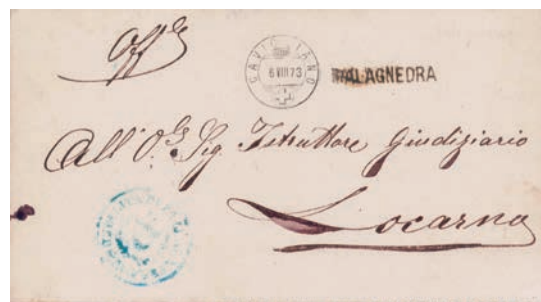 Off.le
CAVIGLIANO
6 VIII 73
PALAGNEDRA
All' O.le Sig. Istruttore Giudiziario
Locarno